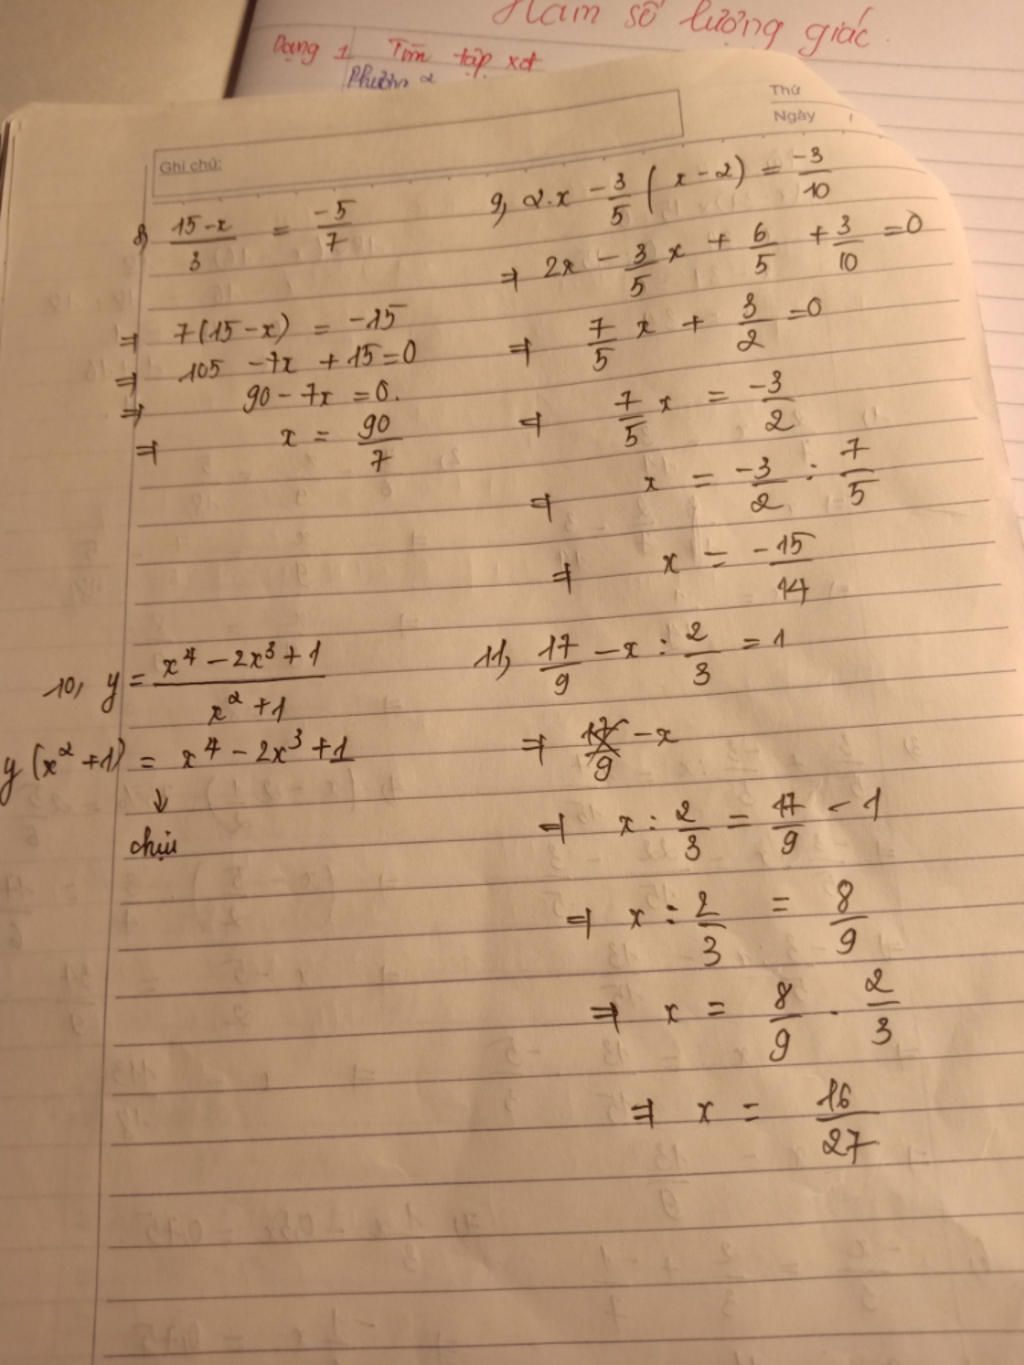 Hàm số lượng giác.
Dạng 1 Tìm tập xđ
Thứ
Ngày
Ghi chú:
8, (15-x)/3 = -5/7
⇒ 7(15-x) = -15
⇒ 105 -7x +15=0
⇒ 90 - 7x = 0.
⇒ x = 90/7
9, 2.x - 3/5 (x-2) = -3/10
⇒ 2x - 3/5 x + 6/5 + 3/10 =0
⇒ 7/5 x + 3/2 =0
⇒ 7/5 x = -3/2
⇒ x = -3/2 : 7/5
⇒ x = -15/14
10, y = (x⁴ - 2x³ + 1)/(x² + 1)
y (x² +1) = x⁴ - 2x³ +1
↓
chịu
11, 17/9 - x : 2/3 = 1
⇒ 17/9 - x
⇒ x : 2/3 = 17/9 - 1
⇒ x : 2/3 = 8/9
⇒ x = 8/9 . 2/3
⇒ x = 16/27